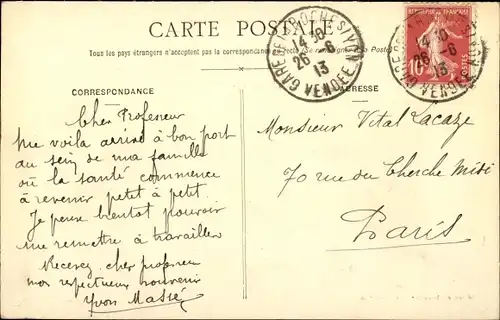 CARTE POSTALE
Tous les pays étrangers n'acceptent pas la correspondance au recto (se renseigner à la Poste)
CORRESPONDANCE
ADRESSE
GARE DE LA ROCHE S/YON
14 30
26 - 6
13
VENDEE
14 30
26 - 6
13
VENDEE
10
POSTES
Cher Professeur
Me voila arrivé à bon port
au sein de ma famille
où la santé commence
à revenir petit à petit.
Je pense bientot pouvoir
me remettre à travailler
Recevez cher professeur
mon respectueux souvenir
Yvon Massé
Monsieur Vital Lacaze
70 rue du Cherche Midi
Paris